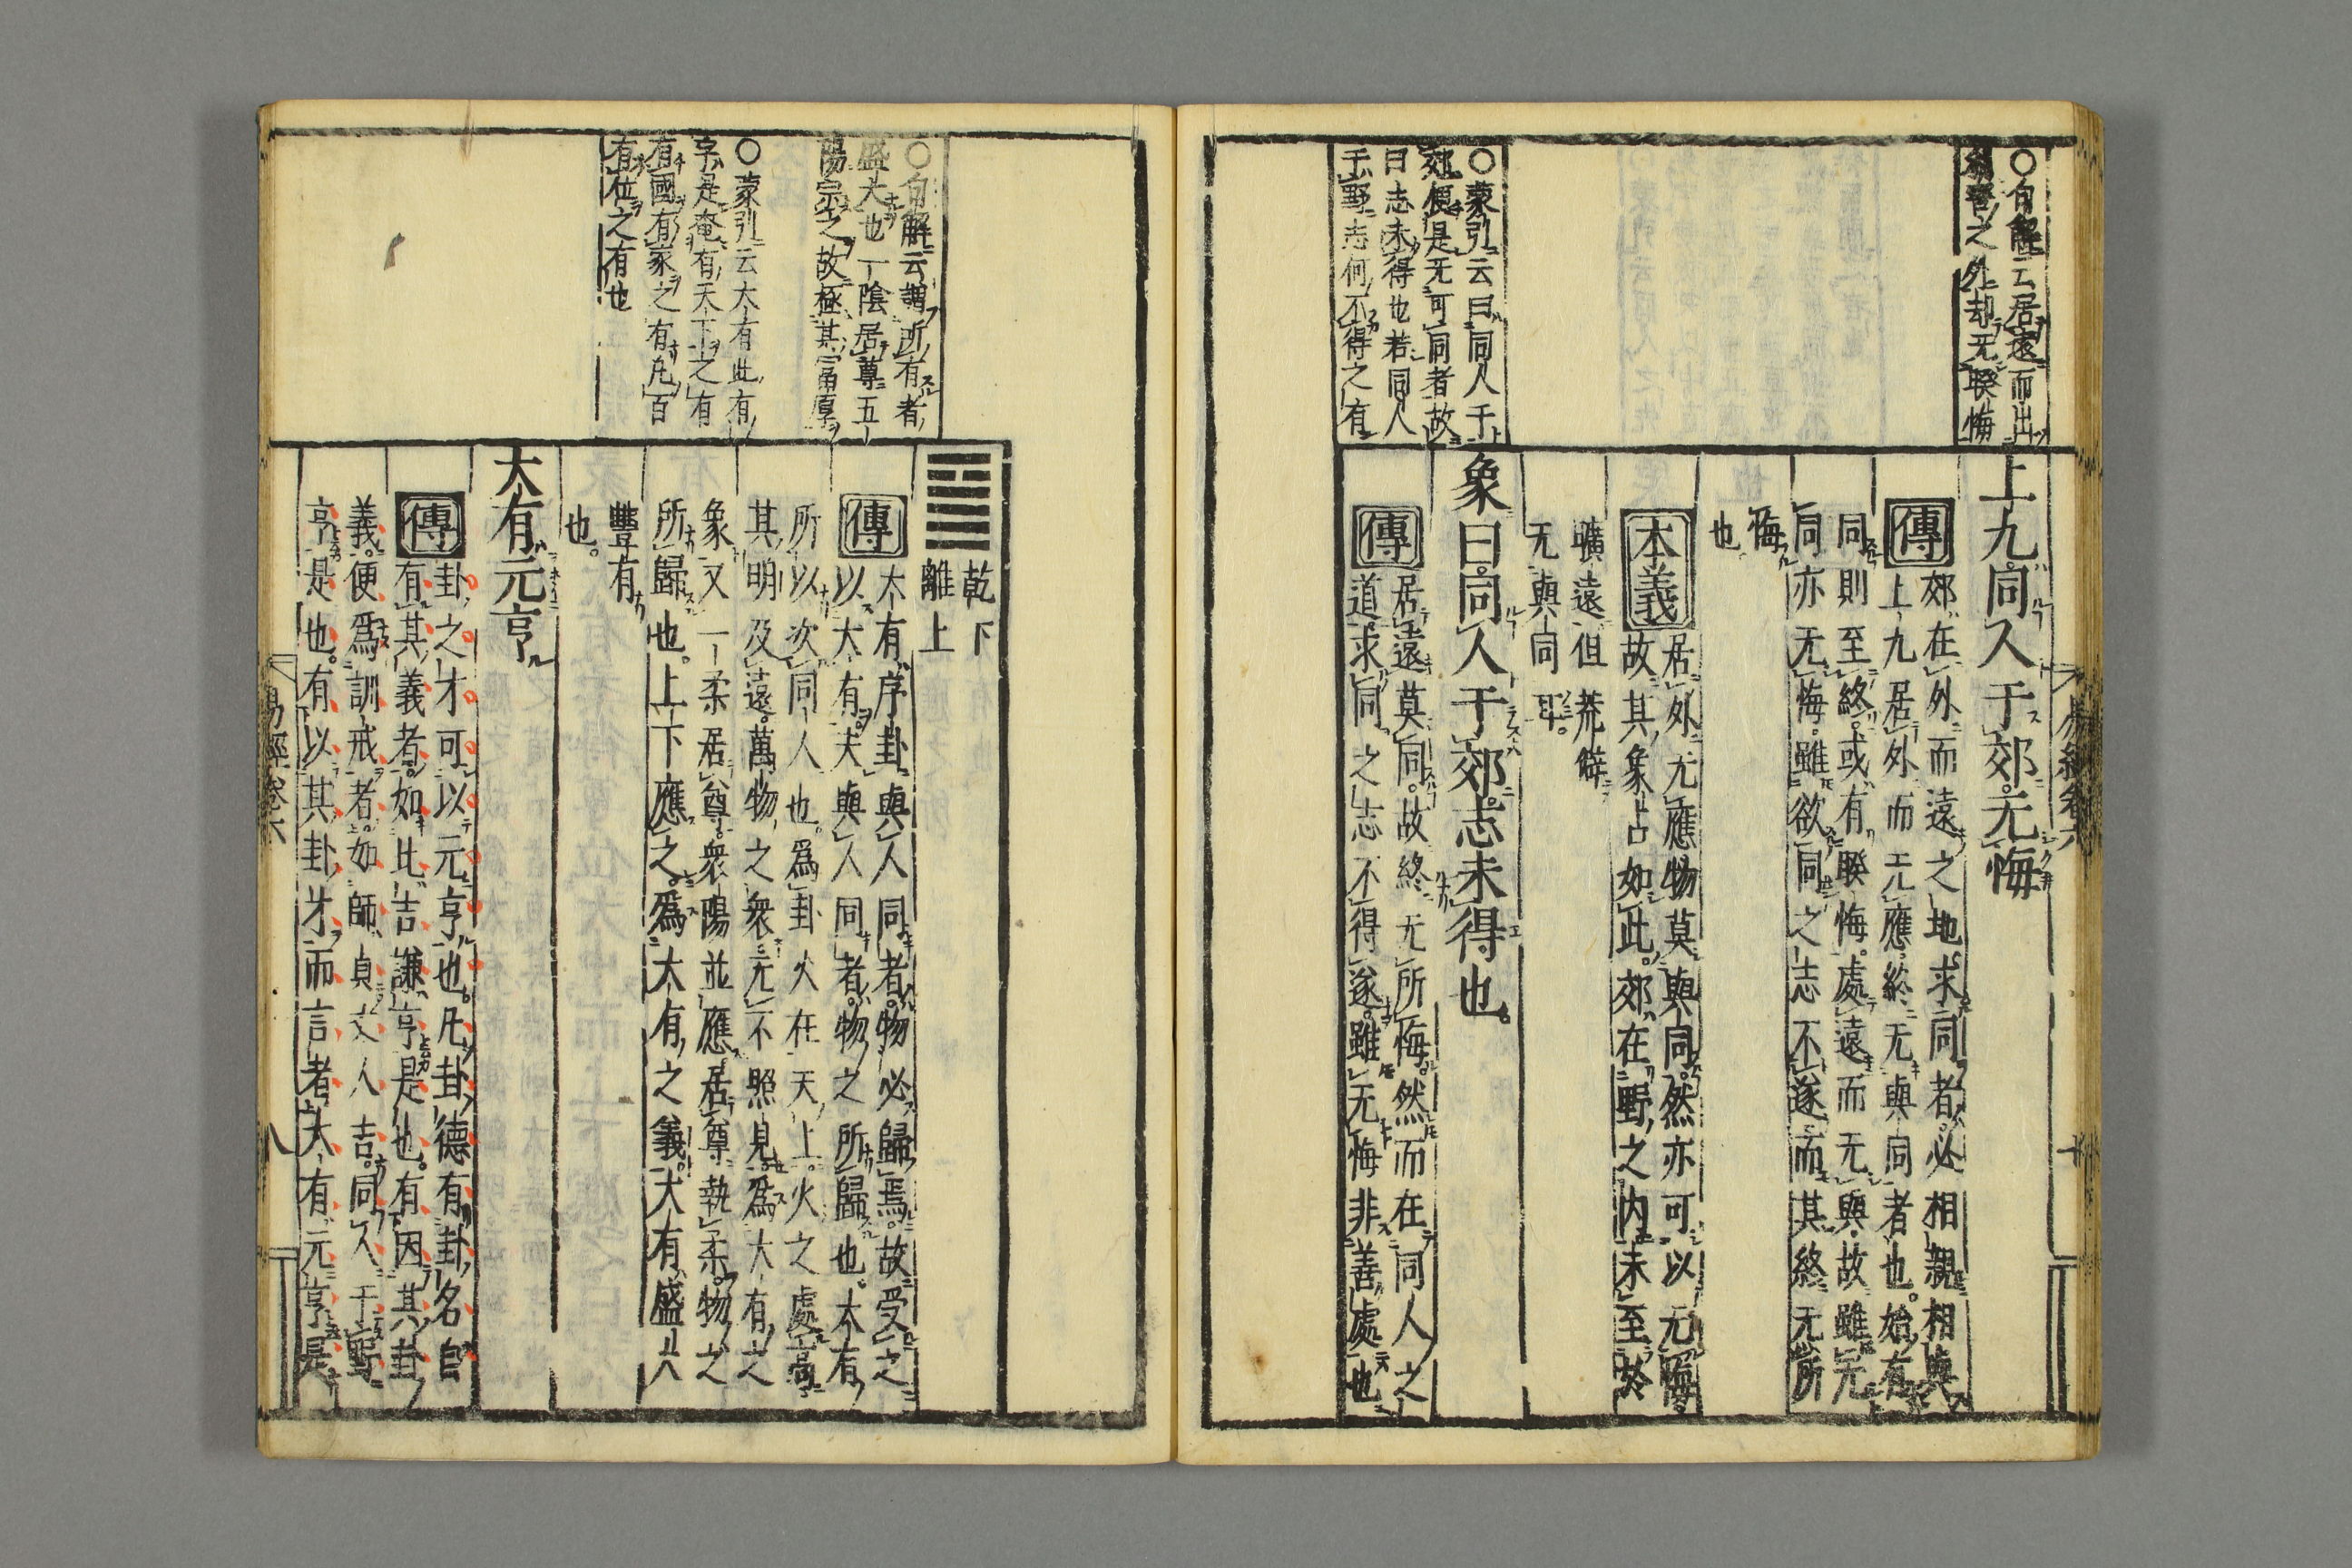 ○句解云居遠而出
之外却无睽悔
上九同人于郊无悔
傳
郊在外而遠之地求同者必相親相與
上九居外而无應終无與同者也始有
同則至終或有睽悔處遠而无與故雖无
同亦无悔雖欲同之志不遂而其終无所
悔
也
本義
居外无應物莫與同然亦可以无悔
故其象占如此郊在野之内未至於
曠遠但荒僻
无與同耳
○蒙引云曰同人于
郊便是无可同者故
曰志未得也若同人
于野志何不得之有
象曰同人于郊志未得也
傳
居遠莫同故終无所悔然而在同人之
道求同之志不得遂雖无悔非善處也
易經卷六
十
乾下
離上
○句解云謂所有者
盛大也一陰居尊五
陽宗之故極其富厚
傳
大有序卦與人同者物必歸焉故受之
以大有夫與人同者物之所歸也大有
所以次同人也爲卦火在天上火之處高
其明及遠萬物之衆无不照見爲大有之
象又一柔居尊衆陽並應居尊執柔物之
所歸也上下應之爲大有之義大有盛大
豐有
也
○蒙引云大有此有
字是奄有天下之有
有國有家之有凡百
有位之有也
大有元亨
傳
卦之才可以元亨也凡卦德有卦名自
有其義者如比吉謙亨是也有因其卦
義便爲訓戒者如師貞丈人吉同人于野
亨是也有以其卦才而言者大有元亨是
易經卷六
八